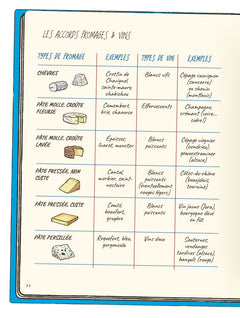 LES ACCORDS FROMAGES & VINS
TYPES DE FROMAGE EXEMPLES TYPES DE VIN EXEMPLES
CHÈVRES
Crottin de
Chavignol,
sainte-maure,
chabichou
Blancs vifs
Cépage sauvignon
(sancerre)
ou chenin
(montlouis)
PÂTE MOLLE, CROÛTE
FLEURIE
Camembert,
brie, chaource
Effervescents
Champagne,
crémant (voire...
cidre !)
PÂTE MOLLE, CROÛTE
LAVÉE
Époisses,
livarot, munster
Blancs
puissants
Cépage viognier
(condrieu),
gewurztraminer
(alsace)
PÂTE PRESSÉE, NON
CUITE
Cantal,
morbier, saint-
nectaire
Blancs
puissants
(éventuellement
rouges légers)
Côtes-du-rhône
(beaujolais,
touraine)
PÂTE PRESSÉE, CUITE
Comté,
beaufort,
gruyère
Blancs
puissants
Vin jaune (jura),
bourgogne élevé
en fût
PÂTE PERSILLÉE
Roquefort, bleu,
gorgonzola
Vins doux
Sauternes,
vendanges
tardives (alsace),
banyuls (rouge)